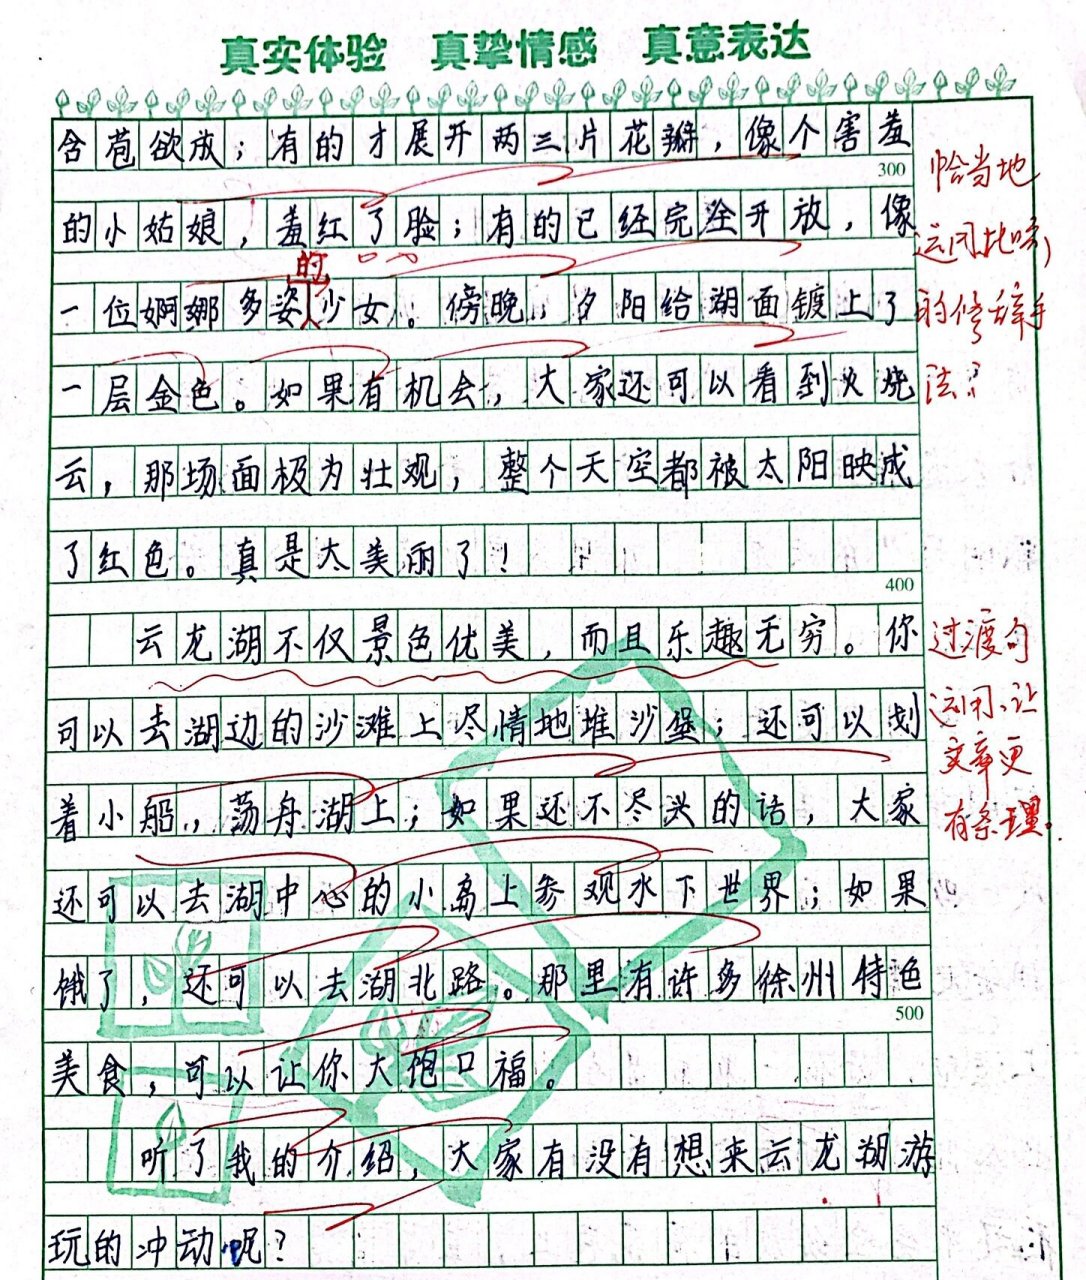 真实体验 真挚情感 真意表达
含苞欲放；有的才展开两三片花瓣，像个害羞
300
恰当地
的小姑娘，羞红了脸；有的已经完全开放，像
运用比喻
的
一位婀娜多姿少女。傍晚，夕阳给湖面镀上了
的修辞手
一层金色。如果有机会，大家还可以看到火烧
法？
云，那场面极为壮观，整个天空都被太阳映成
了红色。真是太美丽了！
400
云龙湖不仅景色优美，而且乐趣无穷。你
过渡句
可以去湖边的沙滩上尽情地堆沙堡；还可以划
运用，让
文章更
着小船，荡舟湖上；如果还不尽兴的话，大家
有条理。
还可以去湖中心的小岛上参观水下世界；如果
饿了，还可以去湖北路。那里有许多徐州特色
500
美食，可以让你大饱口福。
听了我的介绍，大家有没有想来云龙湖游
玩的冲动呢？